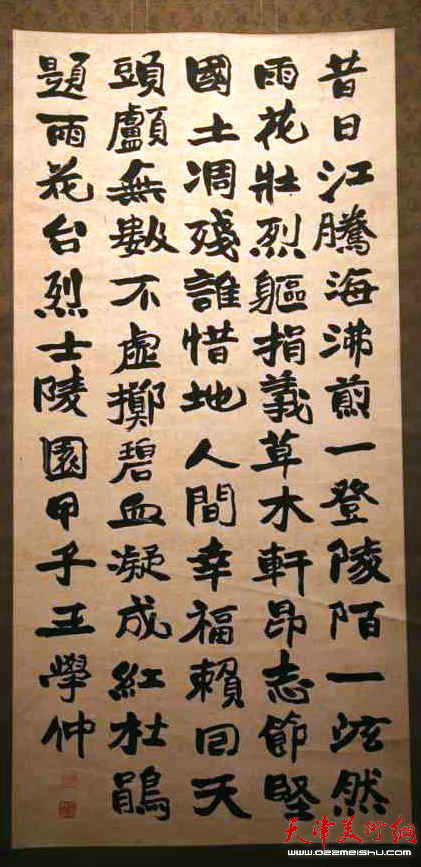 昔日江騰海沸煎一登陵陌一泫然
雨花壯烈軀捐義草木軒昂志節堅
國土凋殘誰惜地人間幸福賴回天
頭顱無數不虛擲碧血凝成紅杜鵑
題雨花台烈士陵園甲子王學仲
天津美術網
www.022meishu.com